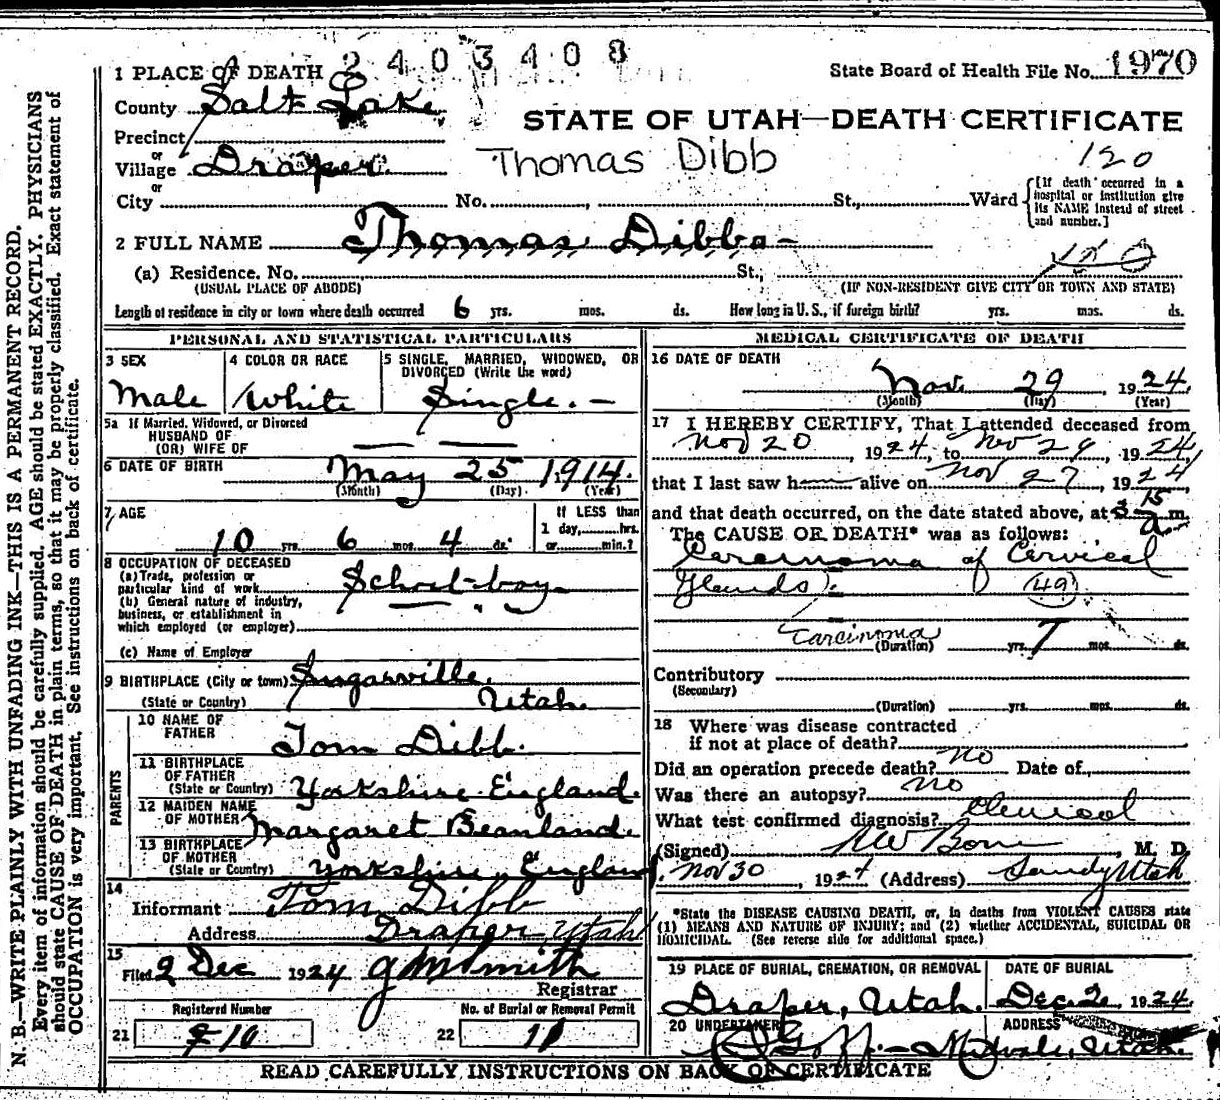 2403408
1 PLACE OF DEATH
State Board of Health File No. 1970
County Salt Lake
STATE OF UTAH—DEATH CERTIFICATE
Precinct
or
Village Draper.
Thomas Dibb
120
or
City No. , St., Ward [If death occurred in a hospital or institution give its NAME instead of street and number.]
2 FULL NAME Thomas Dibb
(a) Residence. No. St.,
(USUAL PLACE OF ABODE) (IF NON-RESIDENT GIVE CITY OR TOWN AND STATE)
Length of residence in city or town where death occurred 6 yrs. mos. ds. How long in U. S., if foreign birth? yrs. mos. ds.
PERSONAL AND STATISTICAL PARTICULARS
3 SEX Male
4 COLOR OR RACE White
5 SINGLE, MARRIED, WIDOWED, OR DIVORCED (Write the word) Single.—
5a If Married, Widowed, or Divorced
HUSBAND OF
(OR) WIFE OF
6 DATE OF BIRTH May 25 1914.
(Month) (Day) (Year)
7 AGE 10 yrs. 6 mos. 4 ds.
If LESS than
1 day,......hrs.
or......min.?
8 OCCUPATION OF DECEASED
(a) Trade, profession or
particular kind of work School-boy
(b) General nature of industry,
business, or establishment in
which employed (or employer)
(c) Name of Employer
9 BIRTHPLACE (City or town) Sugarville.
(State or Country) Utah.
PARENTS
10 NAME OF FATHER Tom Dibb.
11 BIRTHPLACE OF FATHER
(State or Country) Yorkshire England.
12 MAIDEN NAME OF MOTHER Margaret Beanland.
13 BIRTHPLACE OF MOTHER
(State or Country) Yorkshire, England.
14
Informant Tom Dibb
Address Draper, Utah
15
Filed 2 Dec 1924 G M Smith
Registrar
Registered Number No. of Burial or Removal Permit
21 10 22 11
MEDICAL CERTIFICATE OF DEATH
16 DATE OF DEATH
Nov. 29, 1924.
(Month) (Day) (Year)
17 I HEREBY CERTIFY, That I attended deceased from
Nov 20, 1924, to Nov 29, 1924,
that I last saw h alive on Nov 27, 1924
and that death occurred, on the date stated above, at 3 15 a m.
The CAUSE OR DEATH* was as follows:
Carcinoma of Cervical
Glands. 49
Carcinoma
(Duration) yrs. 7 mos. ds.
Contributory
(Secondary)
(Duration) yrs. mos. ds.
18 Where was disease contracted
if not at place of death?
Did an operation precede death? no Date of
Was there an autopsy? no
What test confirmed diagnosis? Clinical
(Signed) , M. D.
Nov 30, 1924 (Address) Sandy Utah
*State the DISEASE CAUSING DEATH, or, in deaths from VIOLENT CAUSES state
(1) MEANS AND NATURE OF INJURY; and (2) whether ACCIDENTAL, SUICIDAL OR
HOMICIDAL. (See reverse side for additional space.)
19 PLACE OF BURIAL, CREMATION, OR REMOVAL DATE OF BURIAL
Draper, Utah. Dec. 2, 1924.
20 UNDERTAKER ADDRESS
Goff - Midvale, Utah.
READ CAREFULLY INSTRUCTIONS ON BACK OF CERTIFICATE
N. B.—WRITE PLAINLY WITH UNFADING INK—THIS IS A PERMANENT RECORD.
Every item of information should be carefully supplied. AGE should be stated EXACTLY. PHYSICIANS
should state CAUSE OF DEATH in plain terms, so that it may be properly classified. Exact statement of
OCCUPATION is very important. See instructions on back of certificate.